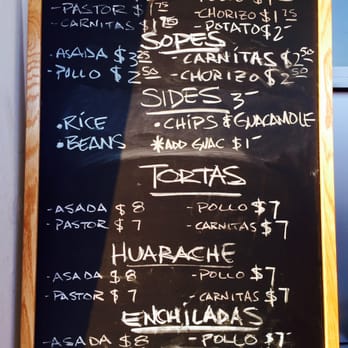 - PASTOR $1.75 - CHORIZO $1.75
- CARNITAS $1.75 - POTATO $2-
SOPES
- ASADA $3.25 - CARNITAS $2.50
- POLLO $2.50 - CHORIZO $2.50
SIDES 3-
• RICE • CHIPS & GUACAMOLE
• BEANS *ADD GUAC $1-
TORTAS
- ASADA $8 - POLLO $7
- PASTOR $7 - CARNITAS $7
HUARACHE
- ASADA $8 - POLLO $7
- PASTOR $7 - CARNITAS $7
ENCHILADAS
- ASADA $8 - POLLO $7-